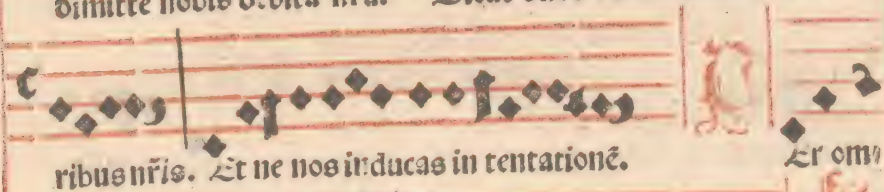 dimitte nobis debita nr̃a.
ribus nr̃is. Et ne nos inducas in tentationẽ.
P
Er om